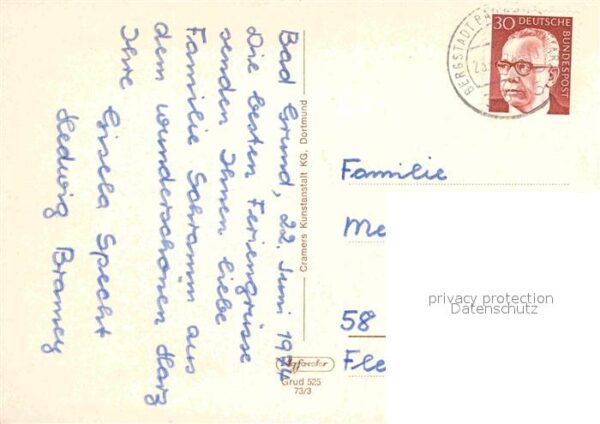 Bad Grund, 22. Juni 1974
Die besten Feriengrüsse
senden Ihnen liebe
Familie Schramm aus
dem wunderschönen Harz
Ihre
Gisela Specht
Hedwig
Cramers Kunstanstalt KG, Dortmund
Grud 525
73/3
BERGSTADT
30 DEUTSCHE
BUNDESPOST
Familie
Me
58
Fle
privacy protection
Datenschutz